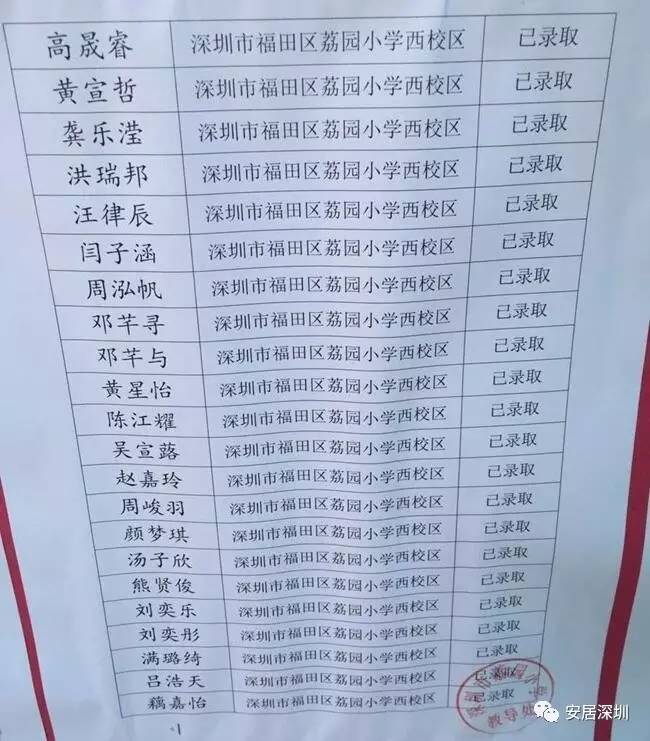 高晟睿 深圳市福田区荔园小学西校区 已录取
黄宣哲 深圳市福田区荔园小学西校区 已录取
龚乐滢 深圳市福田区荔园小学西校区 已录取
洪瑞邦 深圳市福田区荔园小学西校区 已录取
汪律辰 深圳市福田区荔园小学西校区 已录取
闫子涵 深圳市福田区荔园小学西校区 已录取
周泓帆 深圳市福田区荔园小学西校区 已录取
邓芊寻 深圳市福田区荔园小学西校区 已录取
邓芊与 深圳市福田区荔园小学西校区 已录取
黄星怡 深圳市福田区荔园小学西校区 已录取
陈江耀 深圳市福田区荔园小学西校区 已录取
吴宣蕗 深圳市福田区荔园小学西校区 已录取
赵嘉玲 深圳市福田区荔园小学西校区 已录取
周峻羽 深圳市福田区荔园小学西校区 已录取
颜梦琪 深圳市福田区荔园小学西校区 已录取
汤子欣 深圳市福田区荔园小学西校区 已录取
熊贤俊 深圳市福田区荔园小学西校区 已录取
刘奕乐 深圳市福田区荔园小学西校区 已录取
刘奕彤 深圳市福田区荔园小学西校区 已录取
满璐绮 深圳市福田区荔园小学西校区 已录取
吕浩天 深圳市福田区荔园小学西校区 已录取
藕嘉怡 深圳市福田区荔园小学西校区 已录取
教导处
安居深圳